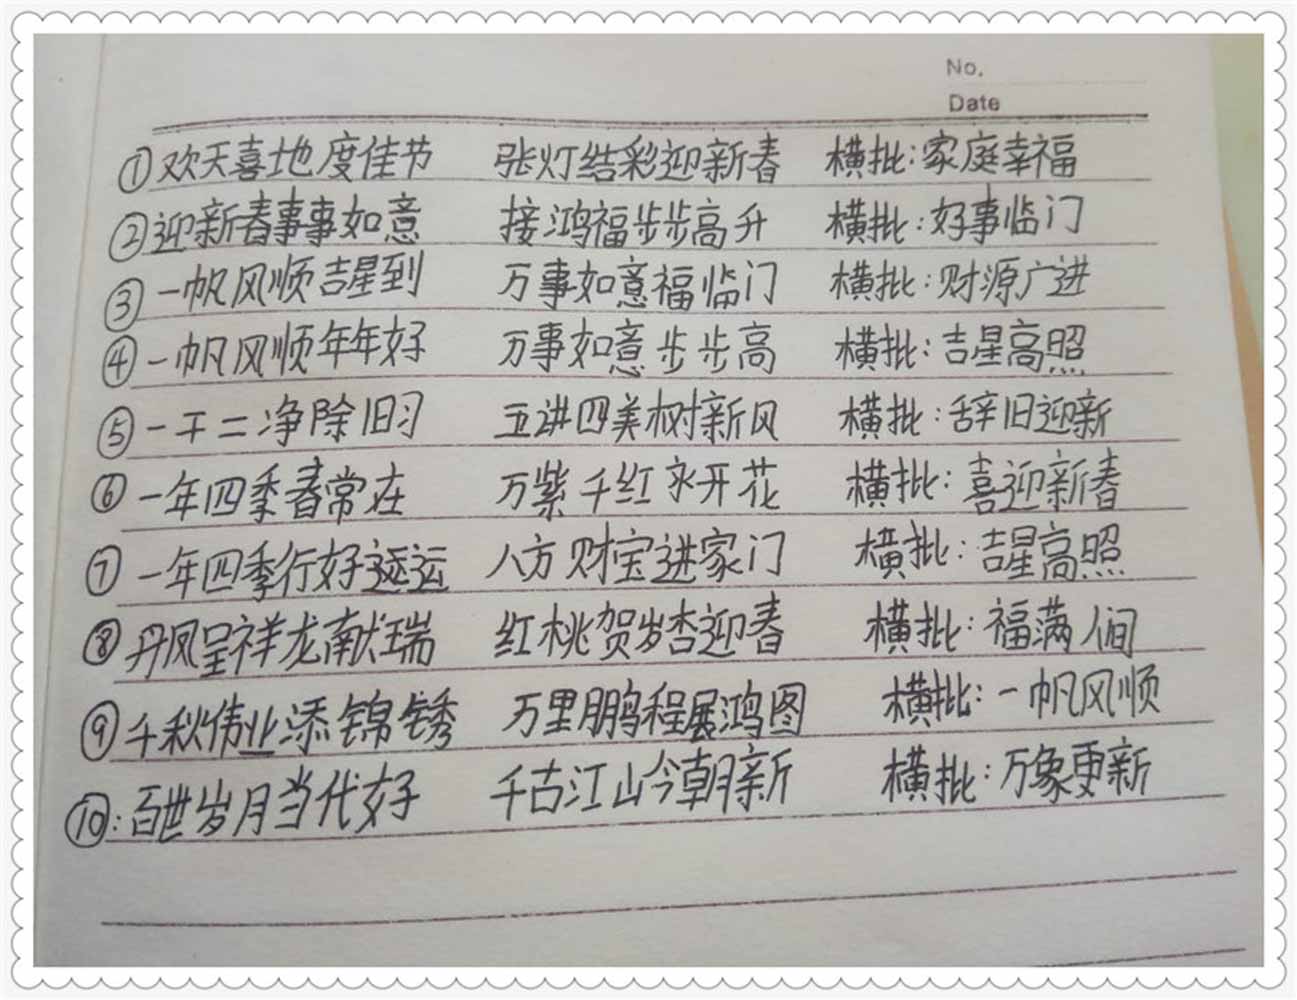 No.
Date
①欢天喜地度佳节 张灯结彩迎新春 横批:家庭幸福
②迎新春事事如意 接鸿福步步高升 横批:好事临门
③一帆风顺吉星到 万事如意福临门 横批:财源广进
④一帆风顺年年好 万事如意步步高 横批:吉星高照
⑤一干二净除旧习 五讲四美树新风 横批:辞旧迎新
⑥一年四季春常在 万紫千红永开花 横批:喜迎新春
⑦一年四季行好运 八方财宝进家门 横批:吉星高照
⑧丹凤呈祥龙献瑞 红桃贺岁杏迎春 横批:福满人间
⑨千秋伟业添锦锈 万里鹏程展鸿图 横批:一帆风顺
⑩:百世岁月当代好 千古江山今朝新 横批:万象更新